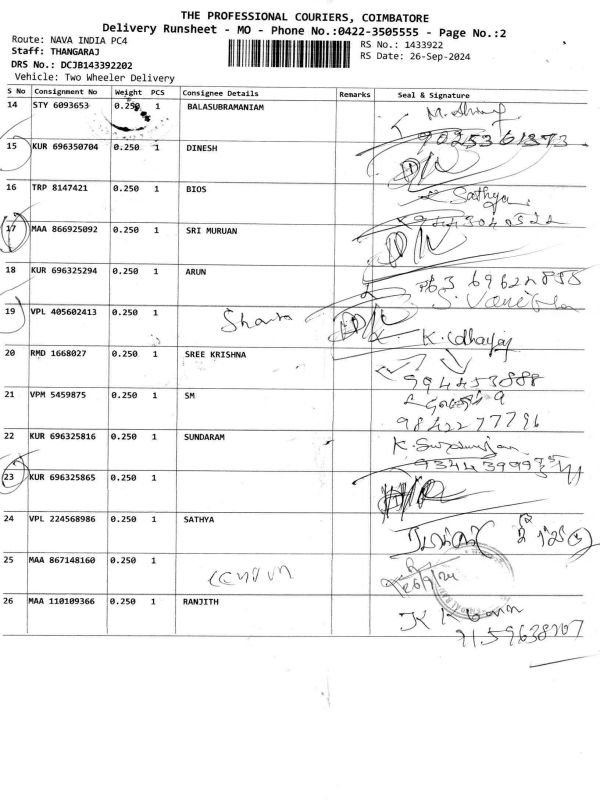 THE PROFESSIONAL COURIERS, COIMBATORE
Delivery Runsheet - MO - Phone No.:0422-3505555 - Page No.:2
Route: NAVA INDIA PC4
RS No.: 1433922
Staff: THANGARAJ
RS Date: 26-Sep-2024
DRS No.: DCJB143392202
Vehicle: Two Wheeler Delivery
S No Consignment No Weight PCS Consignee Details Remarks Seal & Signature
14 STY 6093653 0.250 1 BALASUBRAMANIAM
9025361373
15 KUR 696350704 0.250 1 DINESH
16 TRP 8147421 0.250 1 BIOS Sathya
17 MAA 866925092 0.250 1 SRI MURUAN
18 KUR 696325294 0.250 1 ARUN
19 VPL 405602413 0.250 1
20 RMD 1668027 0.250 1 SREE KRISHNA
21 VPM 5459875 0.250 1 SM
9842277796
22 KUR 696325816 0.250 1 SUNDARAM
23 KUR 696325865 0.250 1
24 VPL 224568986 0.250 1 SATHYA
25 MAA 867148160 0.250 1
26 MAA 110109366 0.250 1 RANJITH